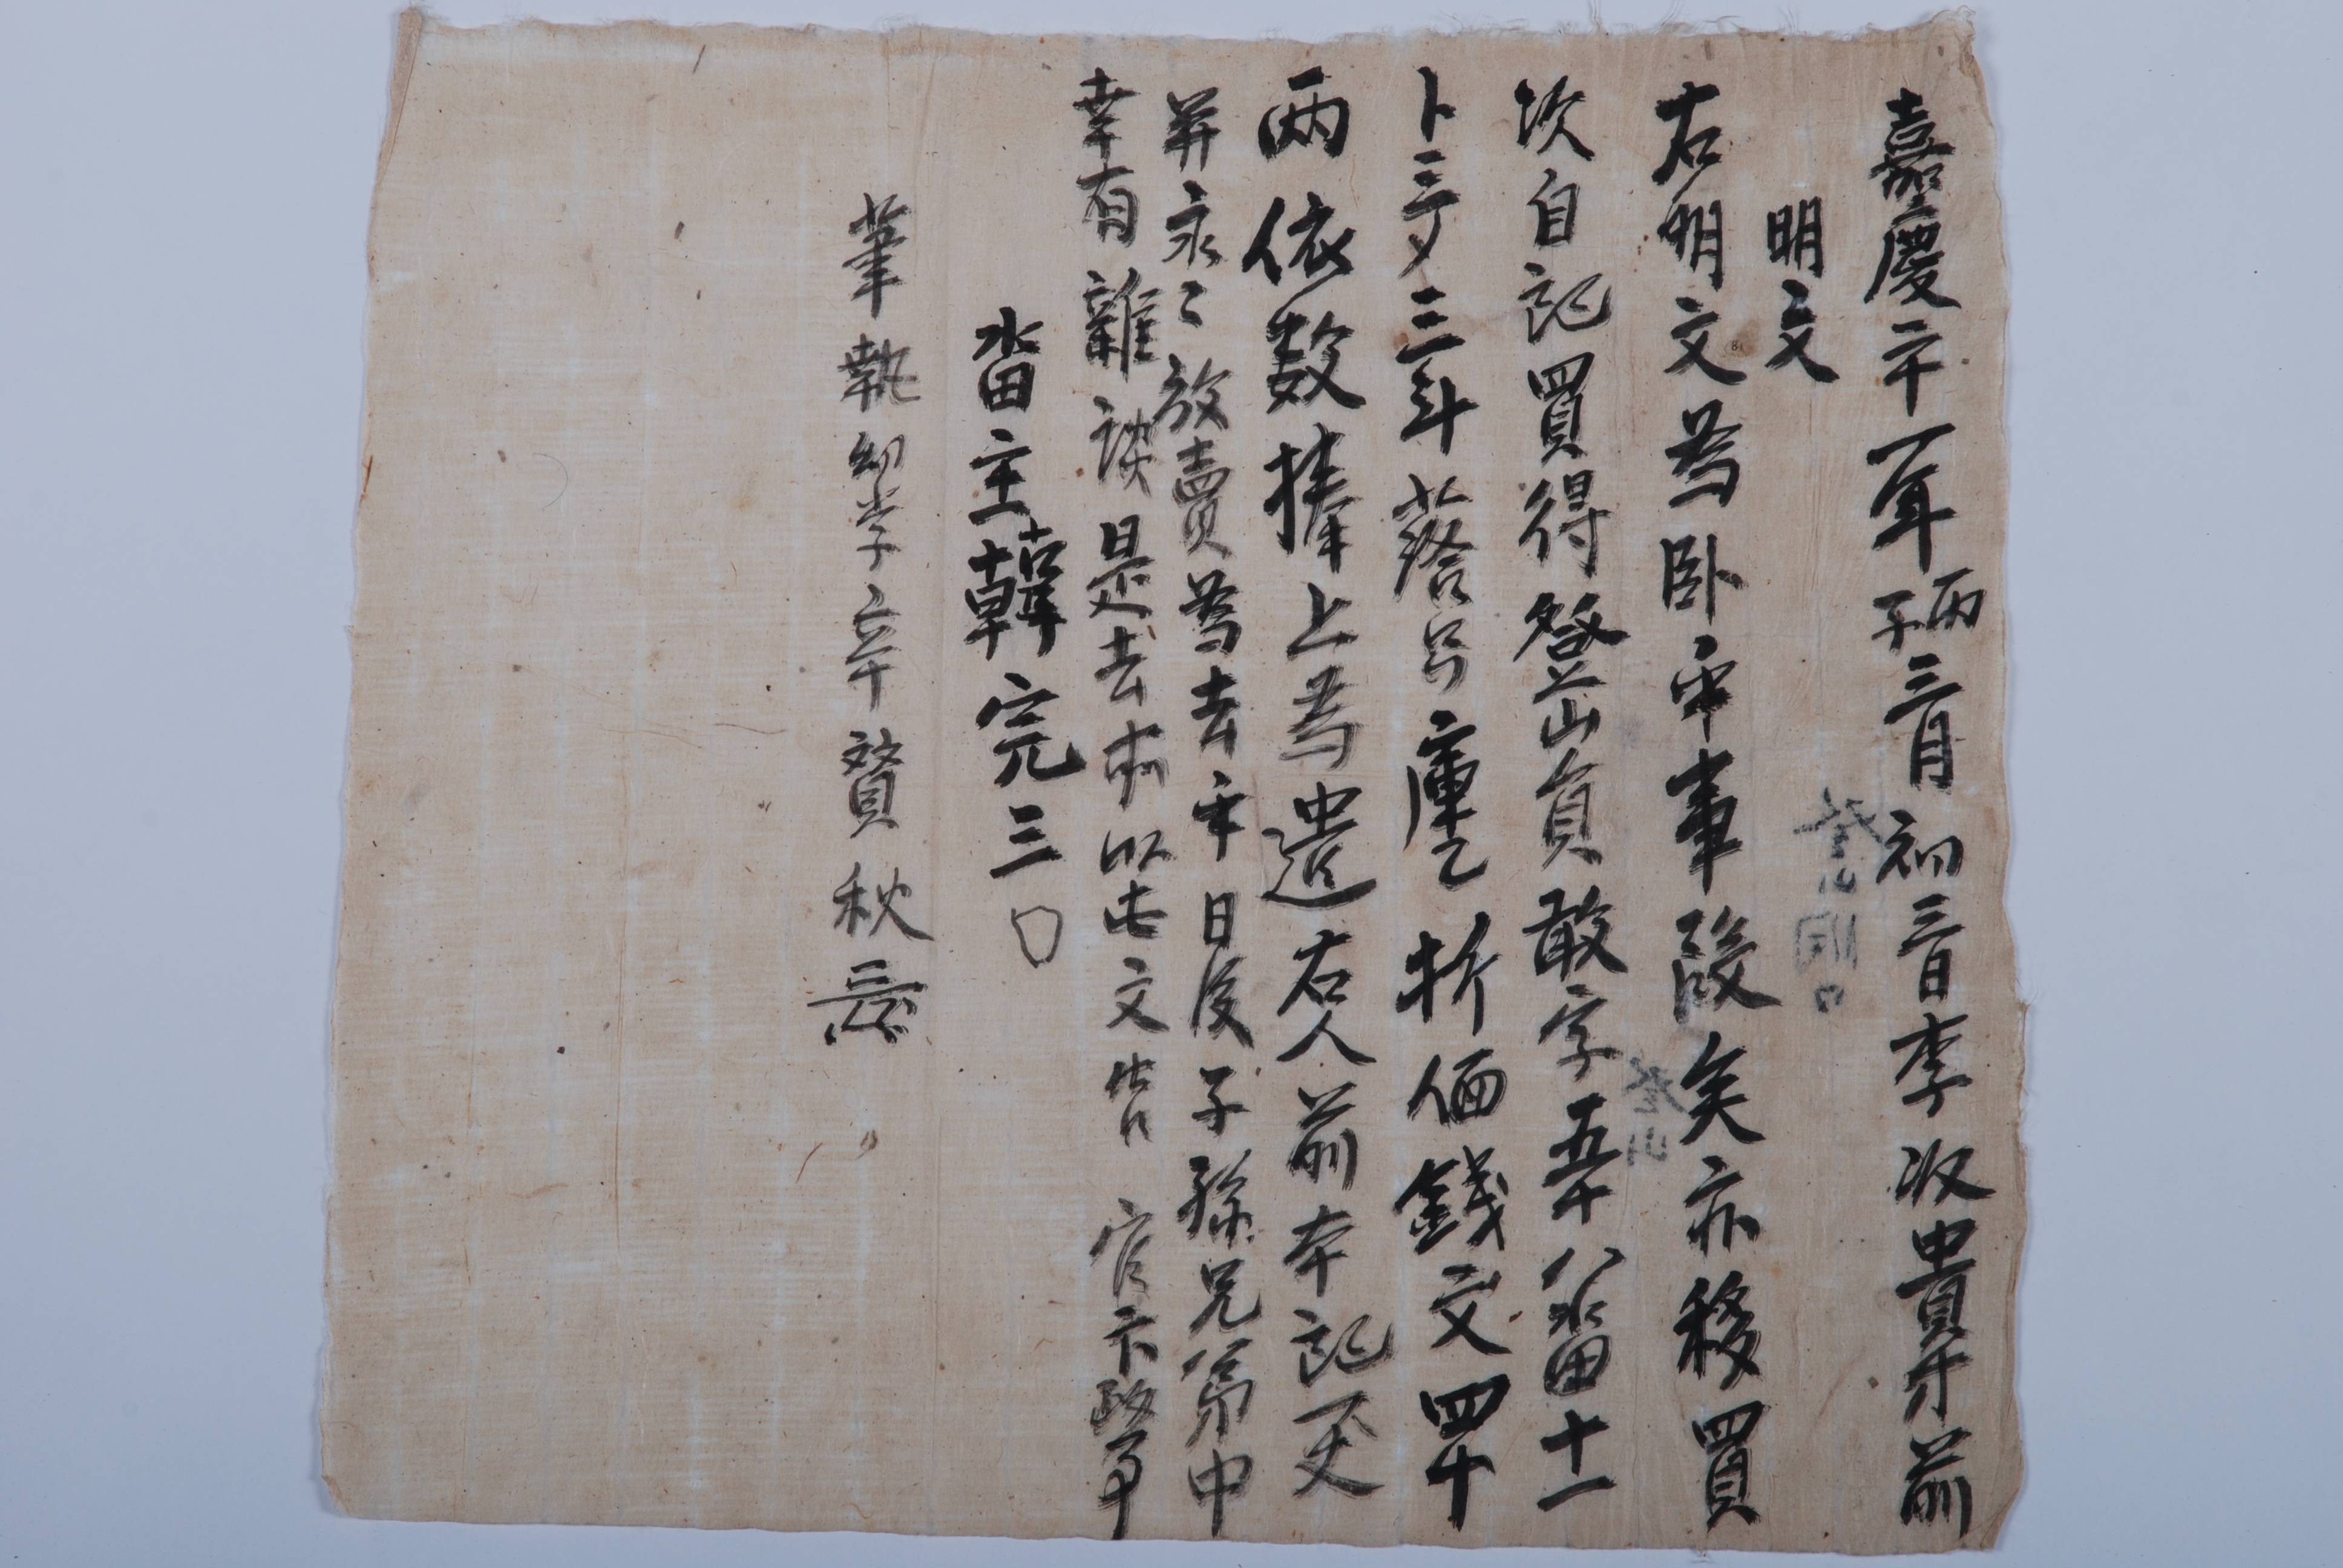 嘉慶二十一年丙子三月初三日李汝貴牙前
明文
右明文爲臥乎事段矣亦移買
次自記買得登山員敢字五十八畓十一
卜三夕三斗落㐣庫乙折価錢文四十
両依数捧上爲遣右人前本記一丈
幷永〻放賣爲去乎日後子孫兄弟中
幸有雜談是去乎以此文告官卞政事
畓主韓完三〇
筆執幼學辛贊秋